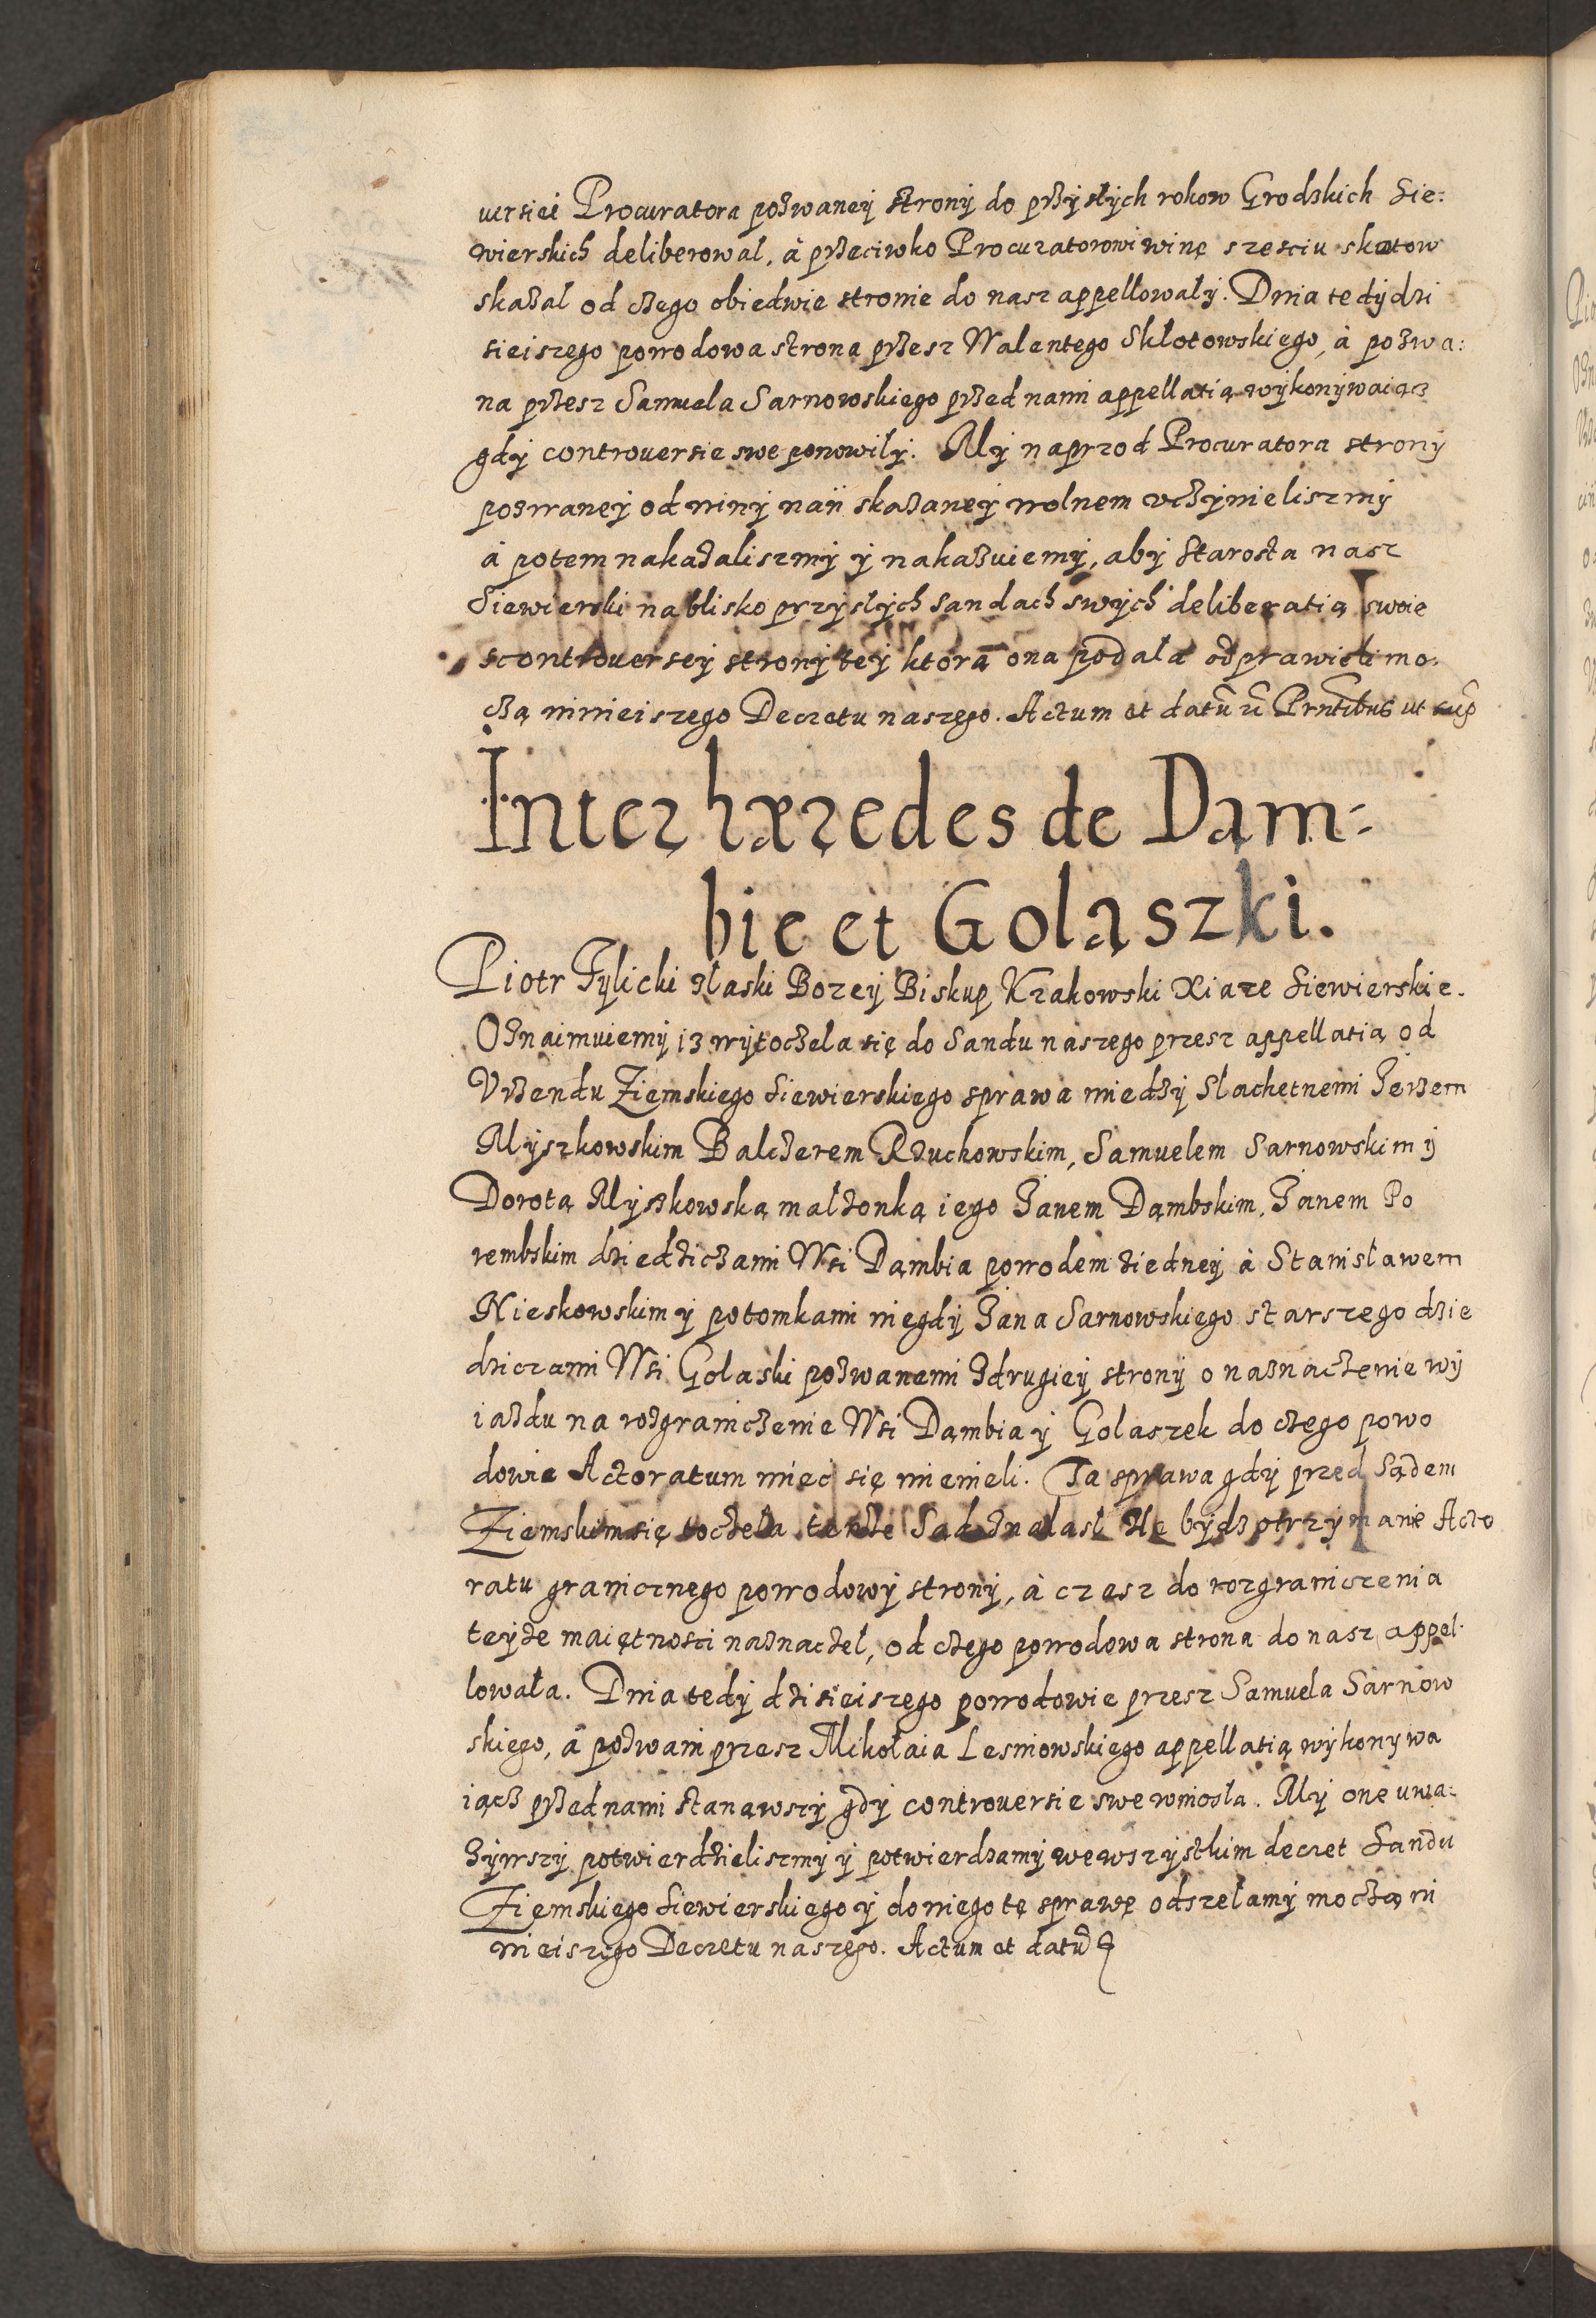 uersiei Procuratora pozwaney strony do przyslych rokow Grodzkich Sie:
wierskich deliberowal, à przeciwko Procuratorowi winę szesciu skotow
skazal od czego obiedwie stronie do nasz appellowaly. Dnia tedy dzi
sieiszego powodowa strona przesz Walentego Sklotowskiego, à pozwa:
na przesz Samuela Sarnowskiego przed nami appellatią wykonywaiącz
gdy controuersie swe ponowily. My naprzod Procuratora strony
pozwaney od winy nań skazaney wolnem vczynieliszmy
à potem nakazaliszmy y nakazuiemy, aby Starosta nasz
Siewierski na blisko przyslych Sandach swych deliberatią swoie
scontrouersey strony tey ktorą ona podala odprawieli mo:
czą ninieiszego Decretu naszego. Actum et datũ
Inter hæredes de Dam:
bie et Golaszki.
Piotr Tylicki zlaski Bozey Biskup Krakowski Xiaze Siewierskie.
Oznaimuiemy iz wytoczela się do Sandu naszego przesz appellatią od
Vrzendu Ziemskiego Siewierskiego sprawa miedzy Slachetnemi Jerzem
Myszkowskim Balczerem Rzuchowskim, Samuelem Sarnowskim y
Dorotą Myszkowską malzonką iego Janem Dąmbskim, Janem Po
rembskim dziedziczami Wsi Dąmbia powodem ziedney à Stanisławem
Nieskowskim y potomkami niegdy Jana Sarnowskiego starszego dzie
dziczami Wsi Golaski pozwanemi zdrugiey strony o naznaczenie wy
iazdu na rozgraniczenie Wsi Dąmbia y Golaszek do czego powo
dowie Actoratum mieć się mienieli. Ta sprawa gdy przed Sądem
Ziemskim się toczela tenze Sad znalasl ze bydz otrzymanie Acto
ratu granicznego powodowy strony, à czasz do rozgraniczenia
teyze maiętnosci naznaczel, od czego powodowa strona do nasz appel:
lowała. Dnia tedy dzisieiszego powodowie przesz Samuela Sarnow
skiego, à pozwani przesz Mikołaia Lesniowskiego appellatią wykonywa
iącz przed nami stanąwszy gdy controuersie swe wniosła. My one uwa:
zywszy potwierdzieliszmy y potwierdzamy we wszystkim decret Sandu
Ziemskiego Siewierskiego y do niego tę sprawę odszełamy moczą ni
nieiszego Decretu naszego. Actum et datũ